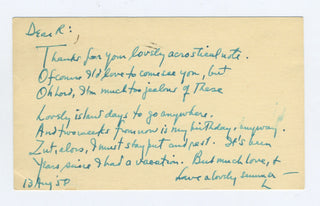 Dear R:,
Thanks for your lovely acrostical note.
Of course I'd love to come see you, but
Oh Lord, I'm much too jealous of these
Lovely island days to go anywhere.
And two weeks from now is my birthday, anyway.
Zut, alors, I must stay put and rest. It's been
Years, since I had a vacation. But much love, &
have a lovely summer
L
13 Aug 50